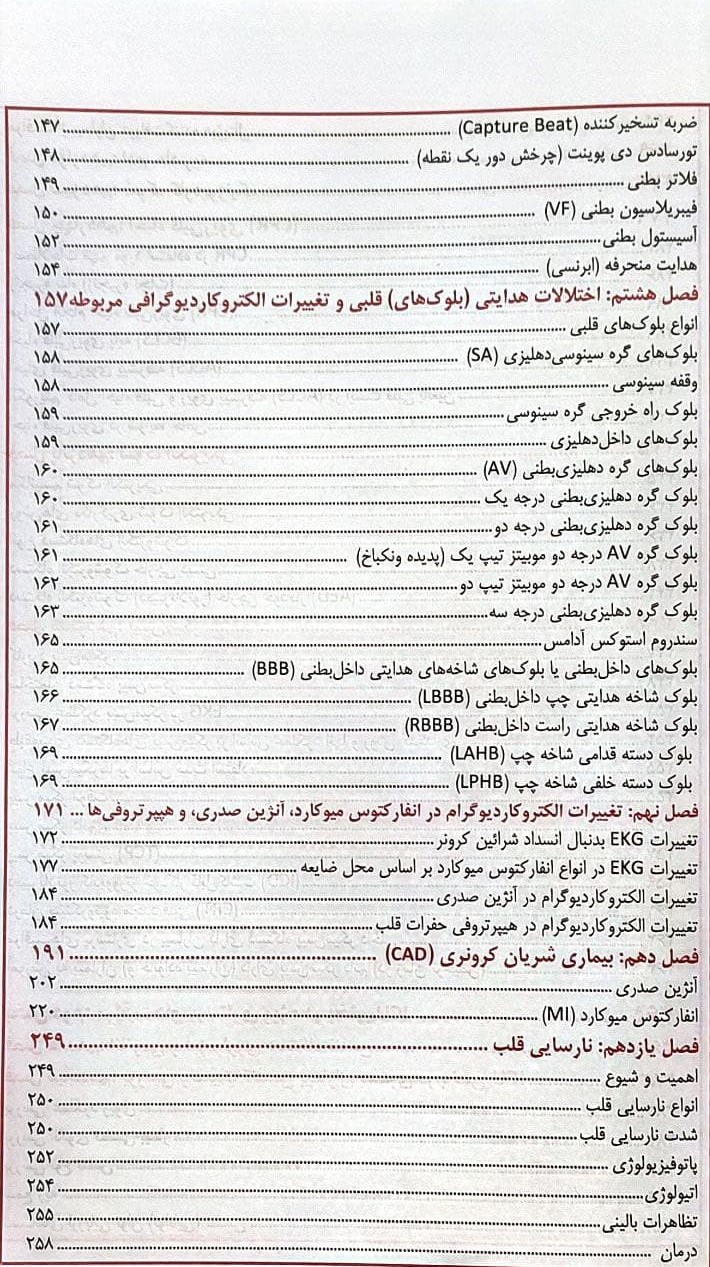 ضربه تسخیرکننده (Capture Beat) ........ ۱۴۷
تورسادس دی پوینت (چرخش دور یک نقطه) ........ ۱۴۸
فلاتر بطنی ........ ۱۴۹
فیبریلاسیون بطنی (VF) ........ ۱۵۰
آسیستول بطنی ........ ۱۵۲
هدایت منحرفه (ابرنسی) ........ ۱۵۴
فصل هشتم: اختلالات هدایتی (بلوک‌های) قلبی و تغییرات الکتروکاردیوگرافی مربوطه ۱۵۷
انواع بلوک‌های قلبی ........ ۱۵۷
بلوک‌های گره سینوسی‌دهلیزی (SA) ........ ۱۵۸
وقفه سینوسی ........ ۱۵۸
بلوک راه خروجی گره سینوسی ........ ۱۵۹
بلوک‌های داخل‌دهلیزی ........ ۱۵۹
بلوک‌های گره دهلیزی‌بطنی (AV) ........ ۱۶۰
بلوک گره دهلیزی‌بطنی درجه یک ........ ۱۶۰
بلوک گره دهلیزی‌بطنی درجه دو ........ ۱۶۱
بلوک گره AV درجه دو موبیتز تیپ یک (پدیده ونکباخ) ........ ۱۶۱
بلوک گره AV درجه دو موبیتز تیپ دو ........ ۱۶۲
بلوک گره دهلیزی‌بطنی درجه سه ........ ۱۶۳
سندروم استوکس آدامس ........ ۱۶۵
بلوک‌های داخل‌بطنی یا بلوک‌های شاخه‌های هدایتی داخل‌بطنی (BBB) ........ ۱۶۵
بلوک شاخه هدایتی چپ داخل‌بطنی (LBBB) ........ ۱۶۶
بلوک شاخه هدایتی راست داخل‌بطنی (RBBB) ........ ۱۶۷
بلوک دسته قدامی شاخه چپ (LAHB) ........ ۱۶۹
بلوک دسته خلفی شاخه چپ (LPHB) ........ ۱۶۹
فصل نهم: تغییرات الکتروکاردیوگرام در انفارکتوس میوکارد، آنژین صدری، و هیپرتروفی‌ها ... ۱۷۱
تغییرات EKG بدنبال انسداد شرائین کرونر ........ ۱۷۲
تغییرات EKG در انواع انفارکتوس میوکارد بر اساس محل ضایعه ........ ۱۷۷
تغییرات الکتروکاردیوگرام در آنژین صدری ........ ۱۸۴
تغییرات الکتروکاردیوگرام در هیپرتروفی حفرات قلب ........ ۱۸۴
فصل دهم: بیماری شریان کرونری (CAD) ........ ۱۹۱
آنژین صدری ........ ۲۰۲
انفارکتوس میوکارد (MI) ........ ۲۲۰
فصل یازدهم: نارسایی قلب ........ ۲۴۹
اهمیت و شیوع ........ ۲۴۹
انواع نارسایی قلب ........ ۲۵۰
شدت نارسایی قلب ........ ۲۵۰
پاتوفیزیولوژی ........ ۲۵۲
اتیولوژی ........ ۲۵۴
تظاهرات بالینی ........ ۲۵۵
درمان ........ ۲۵۸